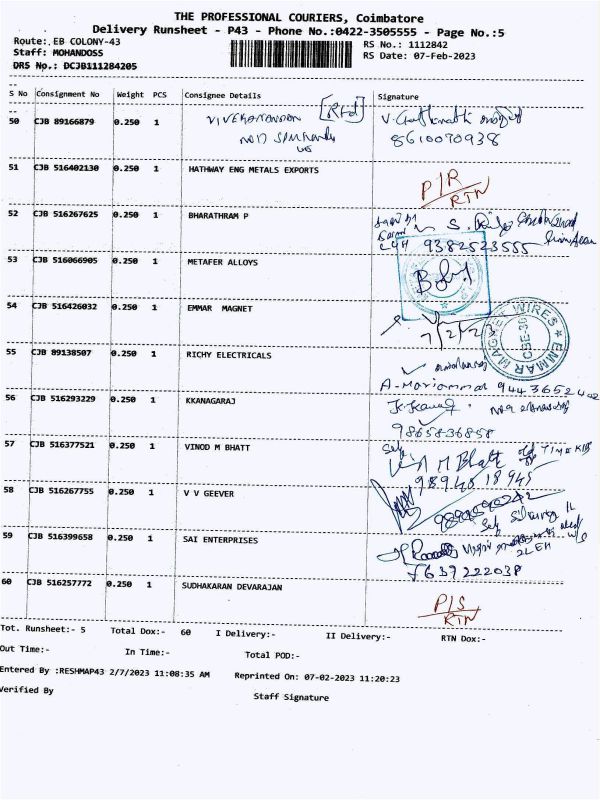 THE PROFESSIONAL COURIERS, Coimbatore
Delivery Runsheet - P43 - Phone No.:0422-3505555 - Page No.:5
Route: EB COLONY-43
RS No.: 1112842
Staff: MOHANDOSS
RS Date: 07-Feb-2023
DRS No.: DCJB111284205
S No Consignment No Weight PCS Consignee Details Signature
50 CJB 89166879 0.250 1 VIVEKANANDAN [Rtd]
8610090938
51 CJB 516402130 0.250 1 HATHWAY ENG METALS EXPORTS
P/R
RTN
52 CJB 516267625 0.250 1 BHARATHRAM P
9382523555
53 CJB 516066905 0.250 1 METAFER ALLOYS
54 CJB 516426032 0.250 1 EMMAR MAGNET
7/2/23
EMMAR MAGNET WIRES ★ CBE-30 ★
55 CJB 89138507 0.250 1 RICHY ELECTRICALS
A-Mariammal 9443652442
56 CJB 516293229 0.250 1 KKANAGARAJ
9865836858
57 CJB 516377521 0.250 1 VINOD M BHATT
Self
M Bhatt
98940 18945
58 CJB 516267755 0.250 1 V V GEEVER
59 CJB 516399658 0.250 1 SAI ENTERPRISES
7639222038
60 CJB 516257772 0.250 1 SUDHAKARAN DEVARAJAN
P/S
RTN
Tot. Runsheet:- 5 Total Dox:- 60 I Delivery:- II Delivery:- RTN Dox:-
Out Time:- In Time:- Total POD:-
Entered By :RESHMAP43 2/7/2023 11:08:35 AM Reprinted On: 07-02-2023 11:20:23
Verified By Staff Signature